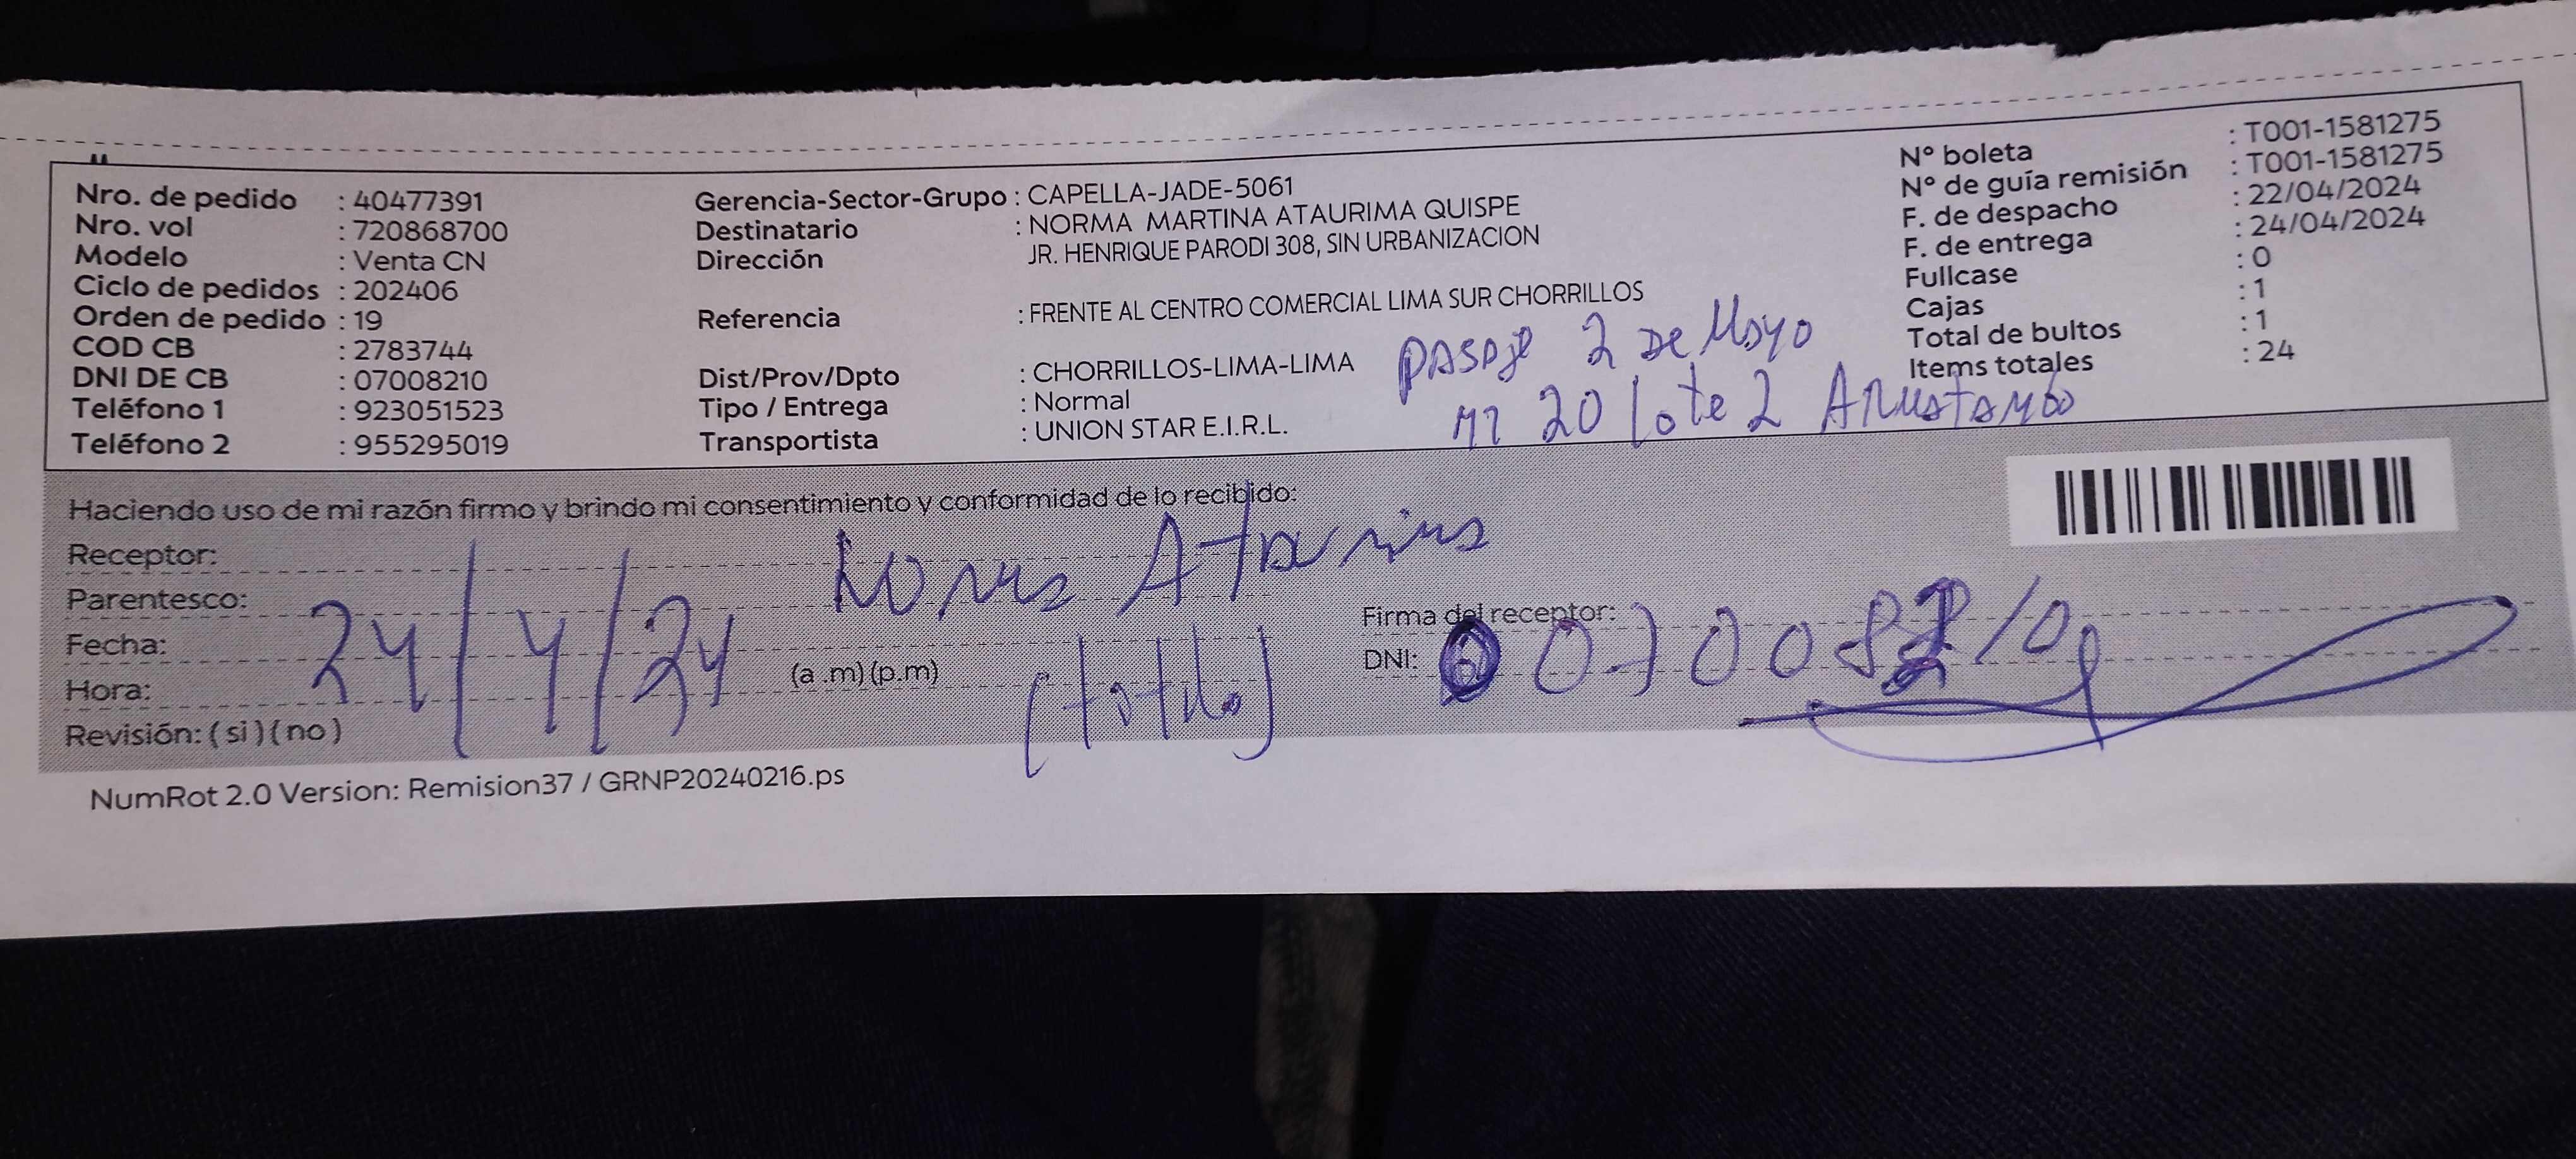 Nro. de pedido : 40477391
Nro. vol : 720868700
Modelo : Venta CN
Ciclo de pedidos : 202406
Orden de pedido : 19
COD CB : 2783744
DNI DE CB : 07008210
Teléfono 1 : 923051523
Teléfono 2 : 955295019
Gerencia-Sector-Grupo : CAPELLA-JADE-5061
Destinatario : NORMA MARTINA ATAURIMA QUISPE
Dirección JR. HENRIQUE PARODI 308, SIN URBANIZACION
Referencia : FRENTE AL CENTRO COMERCIAL LIMA SUR CHORRILLOS
Dist/Prov/Dpto : CHORRILLOS-LIMA-LIMA
Tipo / Entrega : Normal
Transportista : UNION STAR E.I.R.L.
PASAJE 2 DE MAYO
MZ 20 lote 2 ARMATAMBO
N° boleta : T001-1581275
N° de guía remisión : T001-1581275
F. de despacho : 22/04/2024
F. de entrega : 24/04/2024
Fullcase : 0
Cajas : 1
Total de bultos : 1
Items totales : 24
Haciendo uso de mi razón firmo y brindo mi consentimiento y conformidad de lo recibido:
Receptor:
Norma Ataurima
Parentesco:
Fecha:
24/4/24
Hora: (a .m) (p.m)
Revisión: ( si ) ( no )
Firma del receptor:
DNI: 07008210
NumRot 2.0 Version: Remision37 / GRNP20240216.ps